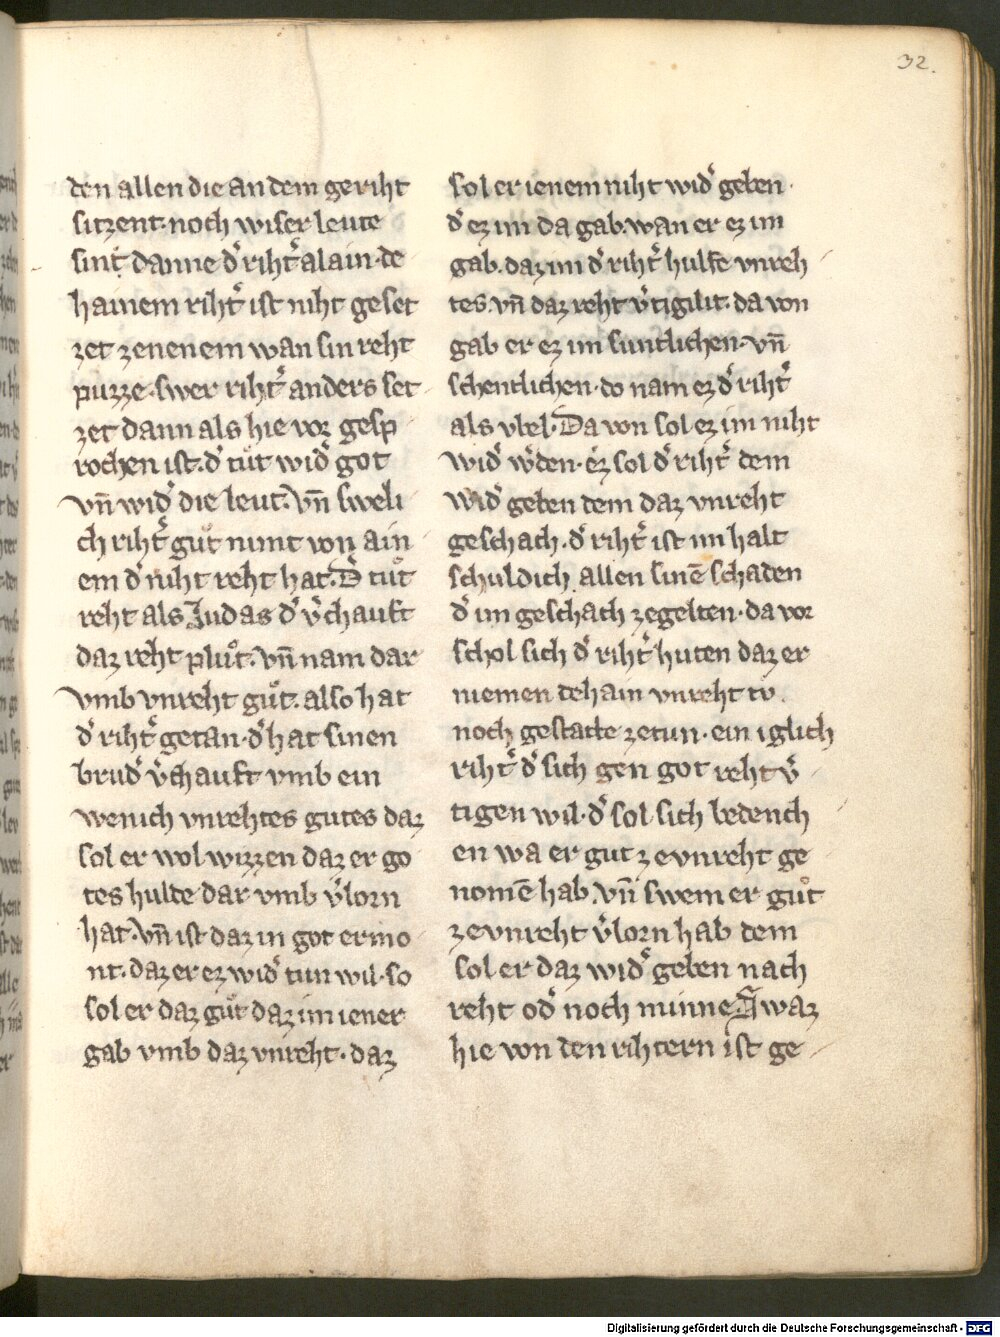 32.
den allen die an dem geriht
sitzent. noch wiser leute
sint danne d͛ riht͛ alain. de
hainem riht͛ ist niht geset
zet ze nenem wan sin reht
puzze. swer riht͛ anders set
zet dann als hie vor gesp
rochen ist. d͛ tůt wid͛ got
vn̄ wid͛ die leut. vn̄ sweli
ch riht͛ gůt nimt von ain
em d͛ niht reht hat. D͛ tůt
reht als Judas d͛ v͛chauft
daz reht plůt. vn̄ nam dar
vmb vnreht gůt. also hat
d͛ riht͛ getan. d͛ hat sinen
brud͛ v͛chauft vmb ein
wenich vnrehtes gutes daz
sol er wol wizzen daz er go
tes hulde dar vmb v͛lorn
hat. vn̄ ist daz in got ermo
nt. daz er ez wid͛ tun wil. so
sol er daz gůt daz im iener
gab vmb daz vnreht. daz
sol er ienem niht wid͛ geben.
d͛ ez im da gab. wan er ez im
gab. daz im d͛ riht͛ hulfe vnreh
tes. vn̄ daz reht v͛tigilit. da von
gab er ez im suntlichen. vn̄
schentlichen. do nam ez d͛ riht͛
als vbel. Da von sol ez im niht
wid͛ w͛den. ez sol d͛ riht͛ dem
wid͛ geben dem daz vnreht
geschach. d͛ riht͛ ist im halt
schuldich allen sinē schaden
d͛ im geschach ze gelten. da vor
schol sich d͛ riht͛ huten daz er
niemen dehain vnreht tv.
noch gestatte ze tun. ein iglich
riht͛ d͛ sich gen got reht v͛
tigen wil. d͛ sol sich bedench
en wa er gut ze vnreht ge
nomē hab. vn̄ swem er gůt
ze vnreht v͛lorn hab dem
sol er daz wid͛ geben nach
reht od͛ noch minne Swaz
hie von den rihtern ist ge
Digitalisierung gefördert durch die Deutsche Forschungsgemeinschaft - DFG